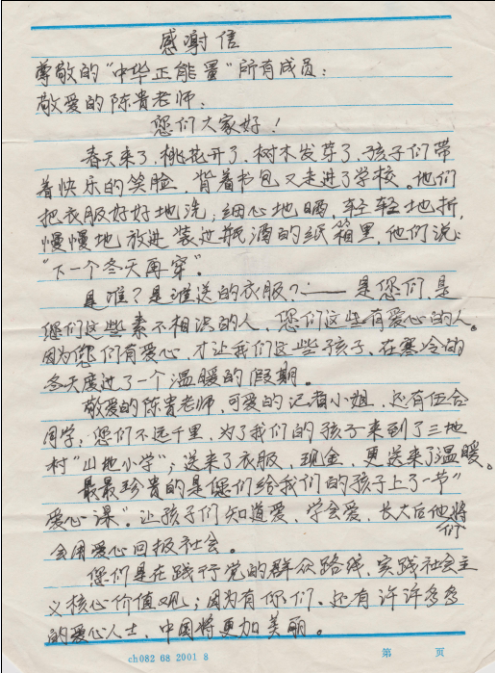 感谢信
尊敬的"中华正能量"所有成员:
敬爱的陈贵老师:
您们大家好!
春天来了,桃花开了,树木发芽了,孩子们带
着快乐的笑脸,背着书包又走进了学校。他们
把衣服好好地洗,细心地晒,轻轻地折,
慢慢地放进装过瓶酒的纸箱里,他们说:
"下一个冬天再穿"。
是谁?是谁送的衣服?——是您们,是
您们这些素不相识的人,您们这些有爱心的人。
因为您们有爱心,才让我们这些孩子,在寒冷的
冬天度过了一个温暖的假期。
敬爱的陈贵老师,可爱的记者小姐,还有伍会
同学,您们不远千里,为了我们的孩子来到了三地
村"山地小学";送来了衣服、现金,更送来了温暖。
最最珍贵的是您们给我们的孩子上了一节"
爱心课"。让孩子们知道爱,学会爱,长大后他们将
会用爱心回报社会。
您们是在践行党的群众路线,实践社会主
义核心价值观;因为有你们,还有许许多多
的爱心人士,中国将更加美丽。
ch082 68 2001 8 第 页